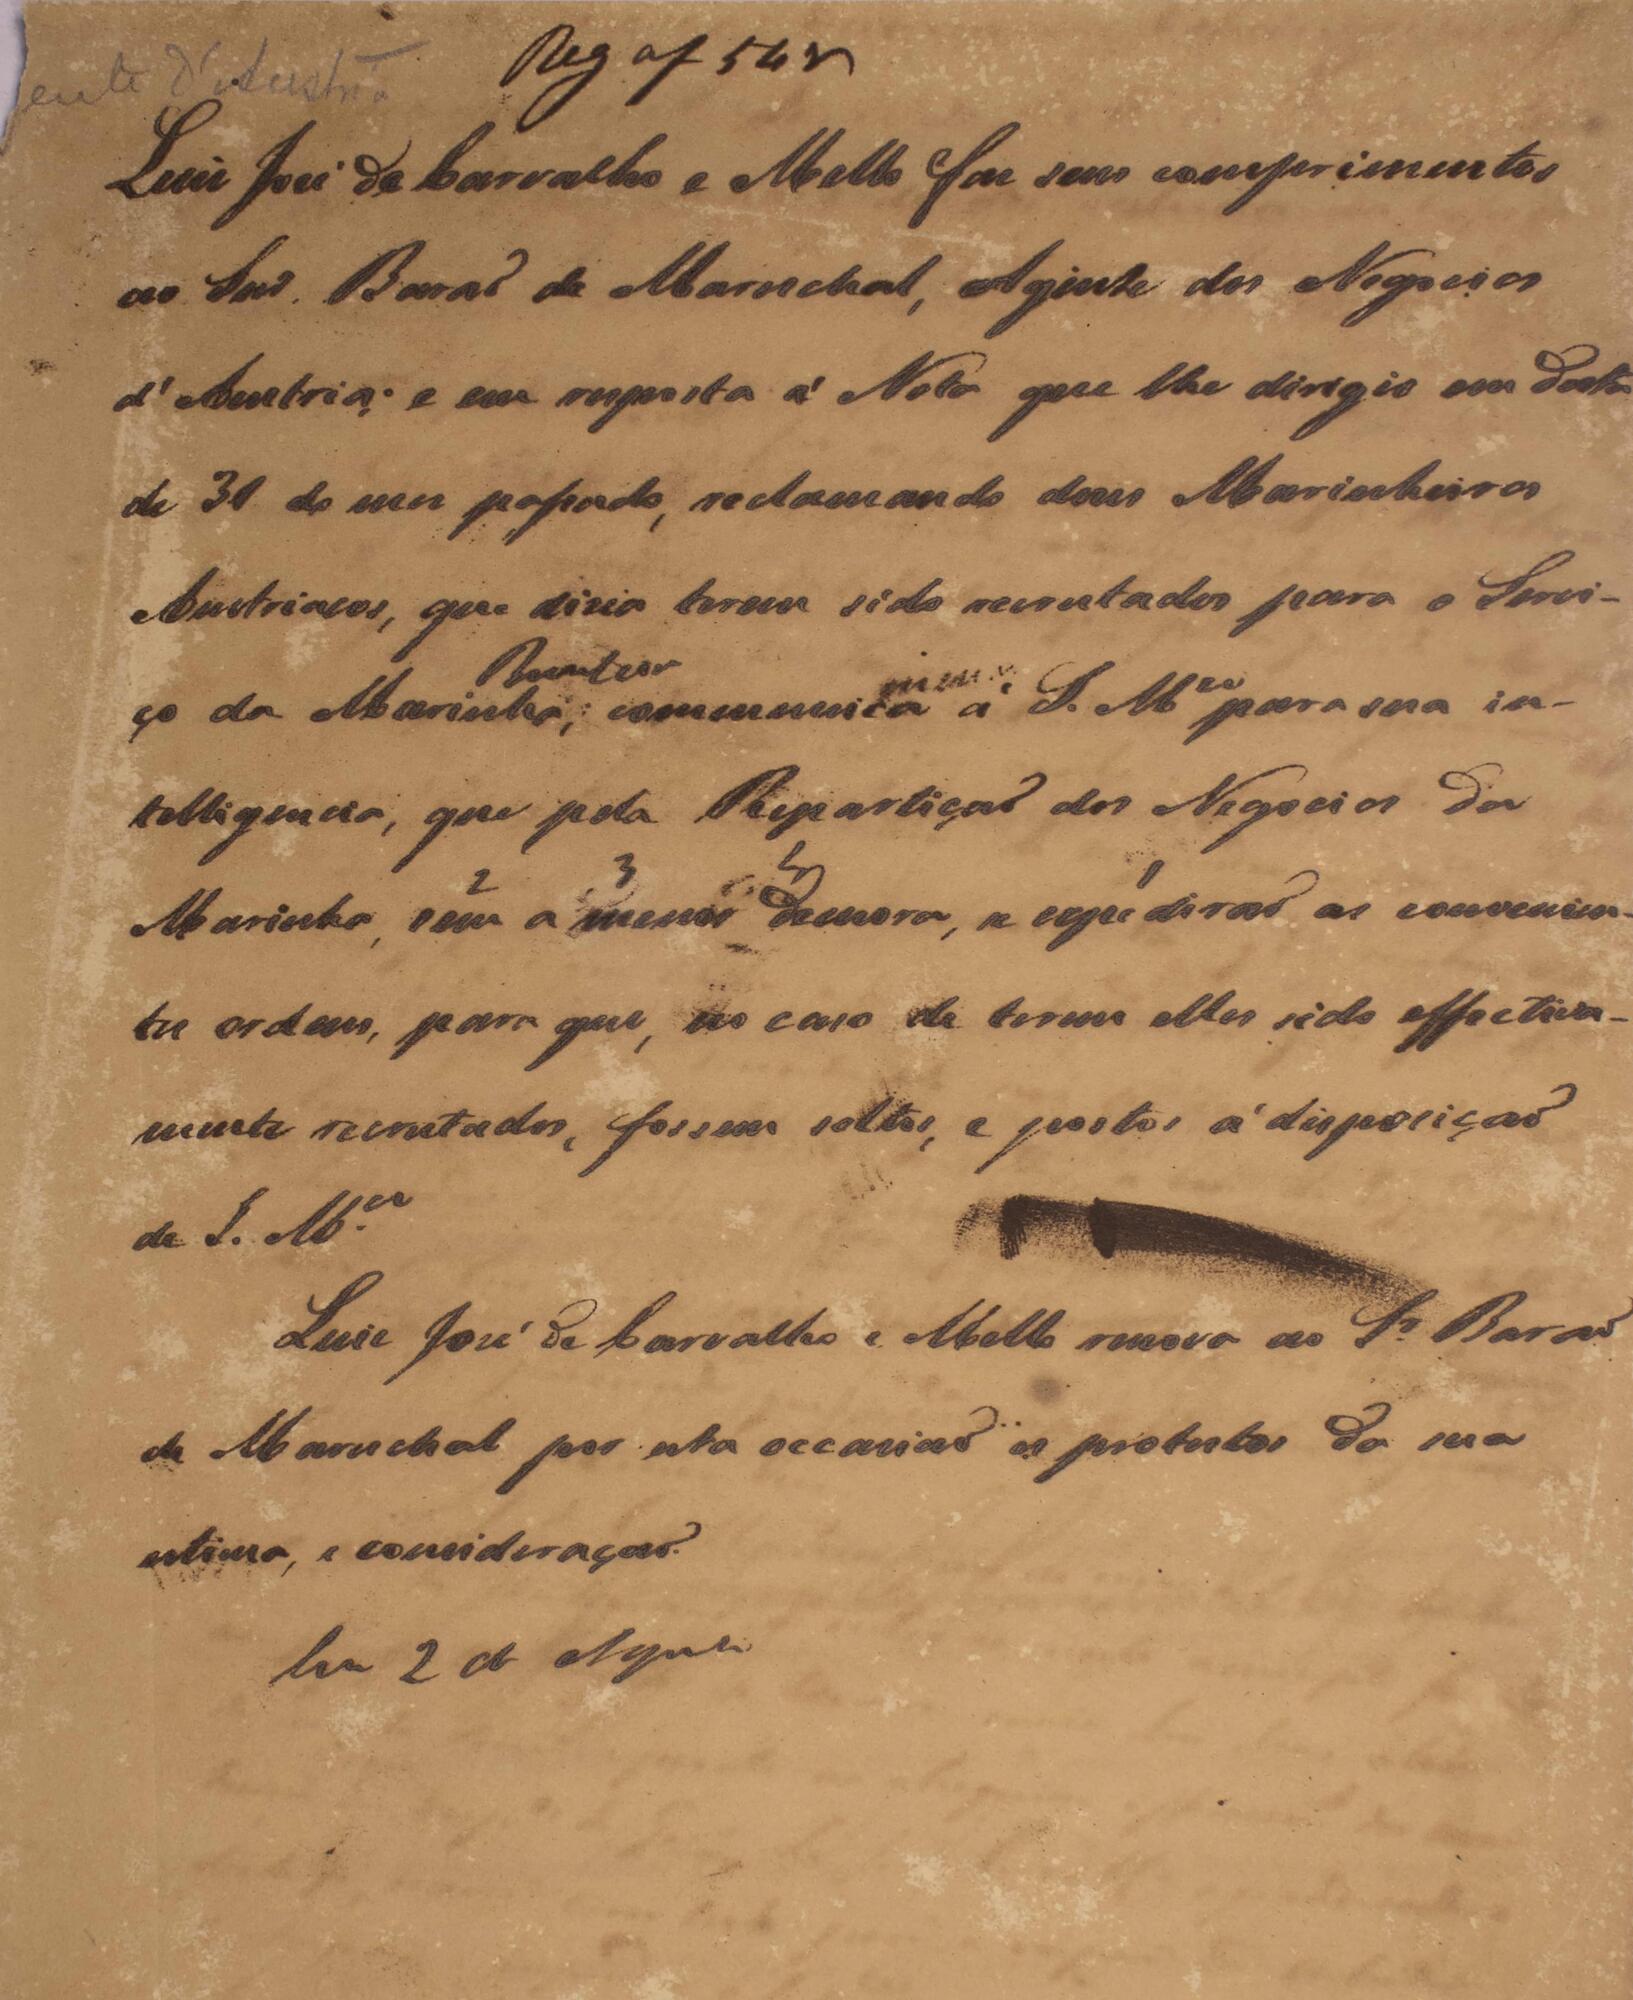 ente d'Austria
Reg a f 54 v
Luiz José de Carvalho e Mello faz seus comprimentos
ao Snr. Barão de Mareschal, Agente dos Negocios
d'Austria; e em resposta á Nota que lhe dirigio em data
de 31 do mez passado, reclamando dous Marinheiros
Austriacos, que dizia terem sido recrutados para o Servi-
ço da Marinha; communica á S. M.ce para sua in-
telligencia, que pela Repartição dos Negocios da
2 3 4 1
Marinha, sem a menor demora, se expedirão as convenien-
tes ordens, para que, no caso de terem elles sido effectiva-
mente recrutados, fossem soltos, e postos á disposição
de S. M.ce
Luiz José de Carvalho e Mello renova ao Sr. Barão
de Mareschal por esta occasião os protestos da sua
estima, e consideração.
Em 2 de Agosto